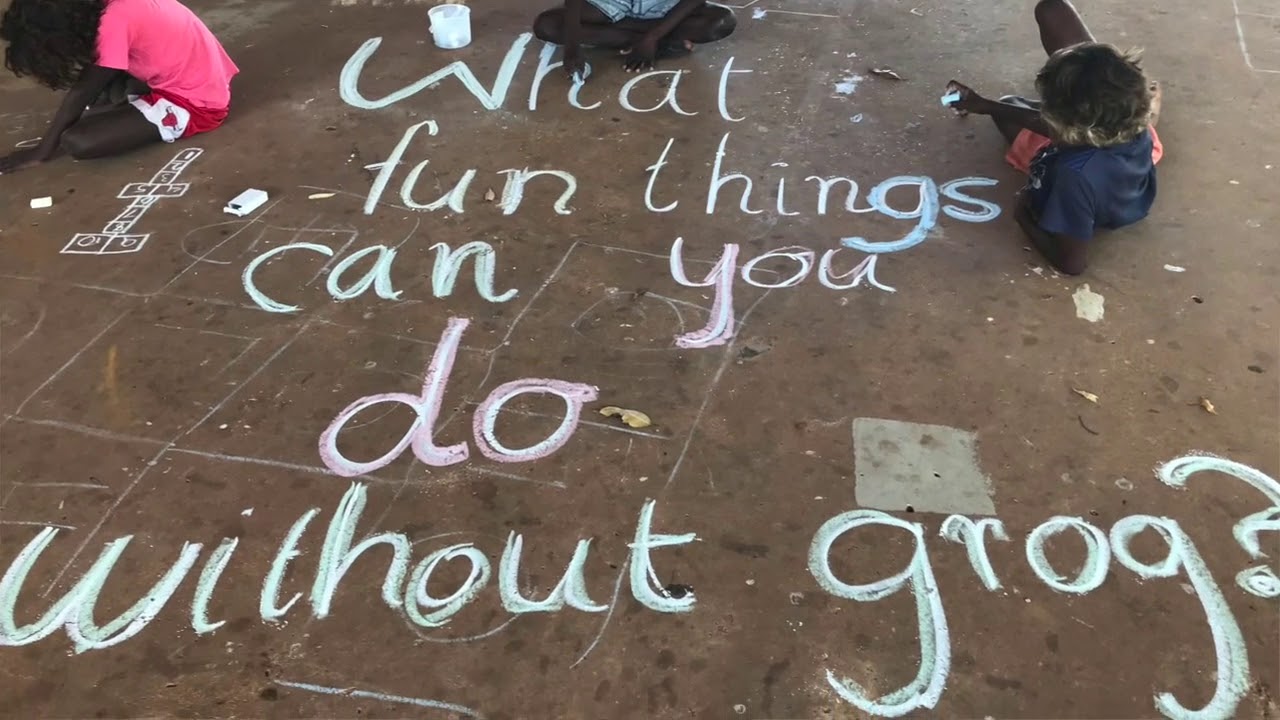 What
fun things
can you
do
without grog?